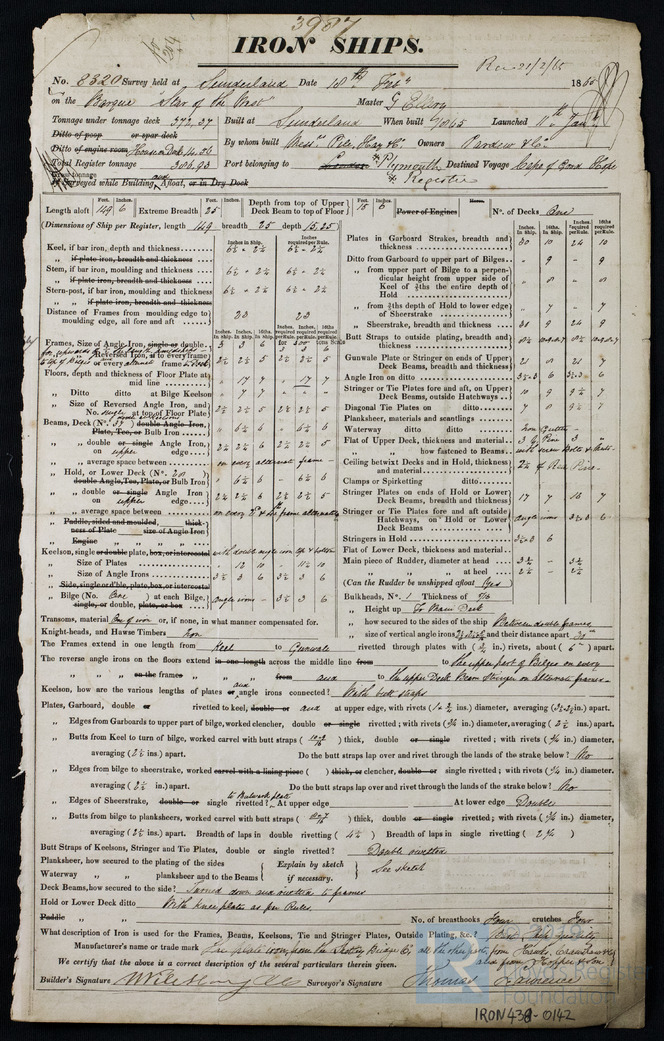 3987
IRON SHIPS.
Rec 21/2/65
No. 8320 Survey held at Sunderland Date 18th Feby 1865
on the Barque "Star of the West" Master G Ellery
Tonnage under deck 372.37 Built at Sunderland When built 1865 Launched 11th Jany
Ditto of poop or spar deck
Ditto of engine room House on Deck 14.56 By whom built Messrs Pile, Hay & Co. Owners Pardew & Co
Total Register tonnage 386.93 Port belonging to London Plymouth Destined Voyage Cape of Good Hope
Gross tonnage
If Surveyed while Building, and Afloat, or in Dry Dock
Length aloft 149 6 Extreme Breadth 25 Depth from top of Upper Deck Beam to top of Floor 15 6 Power of Engines Horse. No. of Decks One
(Dimensions of Ship per Register, length 149 breadth 25 depth 15.25)
Inches in Ship. Inches required per Rule.
Keel, if bar iron, depth and thickness 6½ × 2¼ 6½ × 2¼
„ if plate iron, breadth and thickness
Stem, if bar iron, moulding and thickness 6½ × 2¼ 6½ × 2¼
„ if plate iron, breadth and thickness
Stern-post, if bar iron, moulding and thickness 6½ × 2¼ 6½ × 2¼
„ „ if plate iron, breadth and thickness
Distance of Frames from moulding edge to moulding edge, all fore and aft 20 20
Frames, Size of Angle Iron, single or double
Reversed Iron, is to every frame
or every alternate frame
Floors, depth and thickness of Floor Plate at mid line 17 7 17 7
„ Ditto ditto at Bilge Keelson 7 7 7
„ Size of Reversed Angle Iron, and No. single at top of Floor Plate 2½ 2½ 5 2½ 2½ 5
Beams, Deck (No. 37) double Angle Iron, Plate, Tee, or Bulb Iron 6½ 6 6½ 6
„ „ double or single Angle Iron, on upper edge 2½ 2½ 6 2½ 2½ 5
„ „ average space between on every alternate frame
„ Hold, or Lower Deck (No. 20) double Angle, Tee, Plate, or Bulb Iron 6½ 6 6½ 6
„ „ double or single Angle Iron on upper edge 2½ 2½ 6 2½ 2½ 5
„ „ average space between on every 2d & 4th frame alternately
„ Paddle, sided and moulded, thickness of Plate size of Angle Iron
„ Engine „ „ „ „
Keelson, single or double plate, box, or intercostal with double angle iron top & bottom
„ Size of Plates 12 10 11½ 10
„ Size of Angle Irons 3½ 3 6 3½ 3 6
„ Side, single or d'ble, plate, box, or intercostal
„ Bilge (No. One) at each Bilge, single, or double, plate, or box Angle irons 3½ 3 6
Plates in Garboard Strakes, breadth and thickness 30 10 24 10
„ Ditto from Garboard to upper part of Bilges 9 9
„ from upper part of Bilge to a perpendicular height from upper side of Keel of ⅗ths the entire depth of Hold 8 8
„ from ⅗ths depth of Hold to lower edge of Sheerstrake 7 7
„ Sheerstrake, breadth and thickness 30 9 24 9
Butt Straps to outside plating, breadth and thickness
Gunwale Plate or Stringer on ends of Upper Deck Beams, breadth and thickness 21 8 21 7
Angle Iron on ditto 3½.3 6 3½.3 6
Stringer or Tie Plates fore and aft, on Upper Deck Beams, outside Hatchways 10 9 9½ 7
Diagonal Tie Plates on ditto 7 8 9½ 7
Planksheer, materials and scantlings
Waterway ditto ditto Iron Gutter
Flat of Upper Deck, thickness and material 3 Y Pine 3
„ „ how fastened to Beams with screw Bolts & Nuts
Ceiling betwixt Decks and in Hold, thickness and material 2½ of Red Pine
Clamps or Spirketting ditto
Stringer Plates on ends of Hold or Lower Deck Beams, breadth and thickness 17 7 16 7
Stringer or Tie Plates fore and aft outside Hatchways, on Hold or Lower Deck Beams Angle irons 3½.3 6
Stringers in Hold 3½.3 6
Flat of Lower Deck, thickness and material
Main piece of Rudder, diameter at head 3¾ 3¾
„ „ „ at heel 2½ 2½
(Can the Rudder be unshipped afloat Yes)
Bulkheads, No. 1 Thickness of 5/16
„ Height up To Main Deck
„ how secured to the sides of the ship Between double frames
„ size of vertical angle irons 2½×2½×5/16 and their distance apart 30 in
Transoms, material One of iron or, if none, in what manner compensated for.
Knight-heads, and Hawse Timbers Iron
The Frames extend in one length from Keel to Gunwale rivetted through plates with (¾ in.) rivets, about (6) apart.
The reverse angle irons on the floors extend in one length across the middle line from to the upper part of Bilges on every
„ „ on the frames „ „ from and to the upper Deck Beam Stringer on alternate frames
Keelson, how are the various lengths of plates and or angle irons connected? With butt straps
Plates, Garboard, double or rivetted to keel, double or and at upper edge, with rivets (1 & ¾ ins) diameter, averaging ins) apart.
„ Edges from Garboards to upper part of bilge, worked clencher, double or single rivetted; with rivets (¾ in.) diameter, averaging (2½ ins.) apart.
„ Butts from Keel to turn of bilge, worked carvel with butt straps (10-9/16) thick, double or single rivetted; with rivets (¾ in.) diameter, averaging (2½ ins.) apart. Do the butt straps lap over and rivet through the lands of the strake below? No
„ Edges from bilge to sheerstrake, worked carvel with a lining piece ( ) thick, or clencher, double or single rivetted; with rivets (¾ in.) diameter, averaging (2½ in.) apart. Do the butt straps lap over and rivet through the lands of the strake below? No
„ Edges of Sheerstrake, double or single rivetted? to Bulwark plate At upper edge At lower edge Double
„ Butts from bilge to planksheers, worked carvel with butt straps (8&7/16) thick, double or single rivetted; with rivets (¾ in.) diameter, averaging (2½ ins.) apart. Breadth of laps in double rivetting (4½) Breadth of laps in single rivetting (2¾)
Butt Straps of Keelsons, Stringer and Tie Plates, double or single rivetted? Double rivetted
Planksheer, how secured to the plating of the sides Explain by sketch See sketch
Waterway „ „ planksheer and to the Beams if necessary.
Deck Beams, how secured to the side? Turned down and rivetted to frames
Hold or Lower Deck ditto With knee plates as per Rules.
Paddle „ „ No. of breasthooks Four crutches Four
What description of Iron is used for the Frames, Beams, Keelsons, Tie and Stringer Plates, Outside Plating, &c.? Best Ship quality
Manufacturer's name or trade mark The plate iron from the Shotley Bridge Co, all the other parts from Hawks, Crawshay & Co and from Hopper & Son
We certify that the above is a correct description of the several particulars therein given.
Builder's Signature Surveyor's Signature Thomas Lawrence
Foundation
IRON438-0142